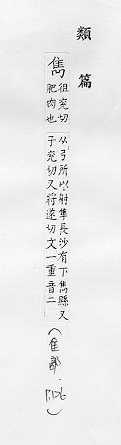 類篇
雋徂兖切肥肉也从弓所以射隹長沙有下雋縣又
子兖切又將遂切文一重音二
(隹部.P.126)